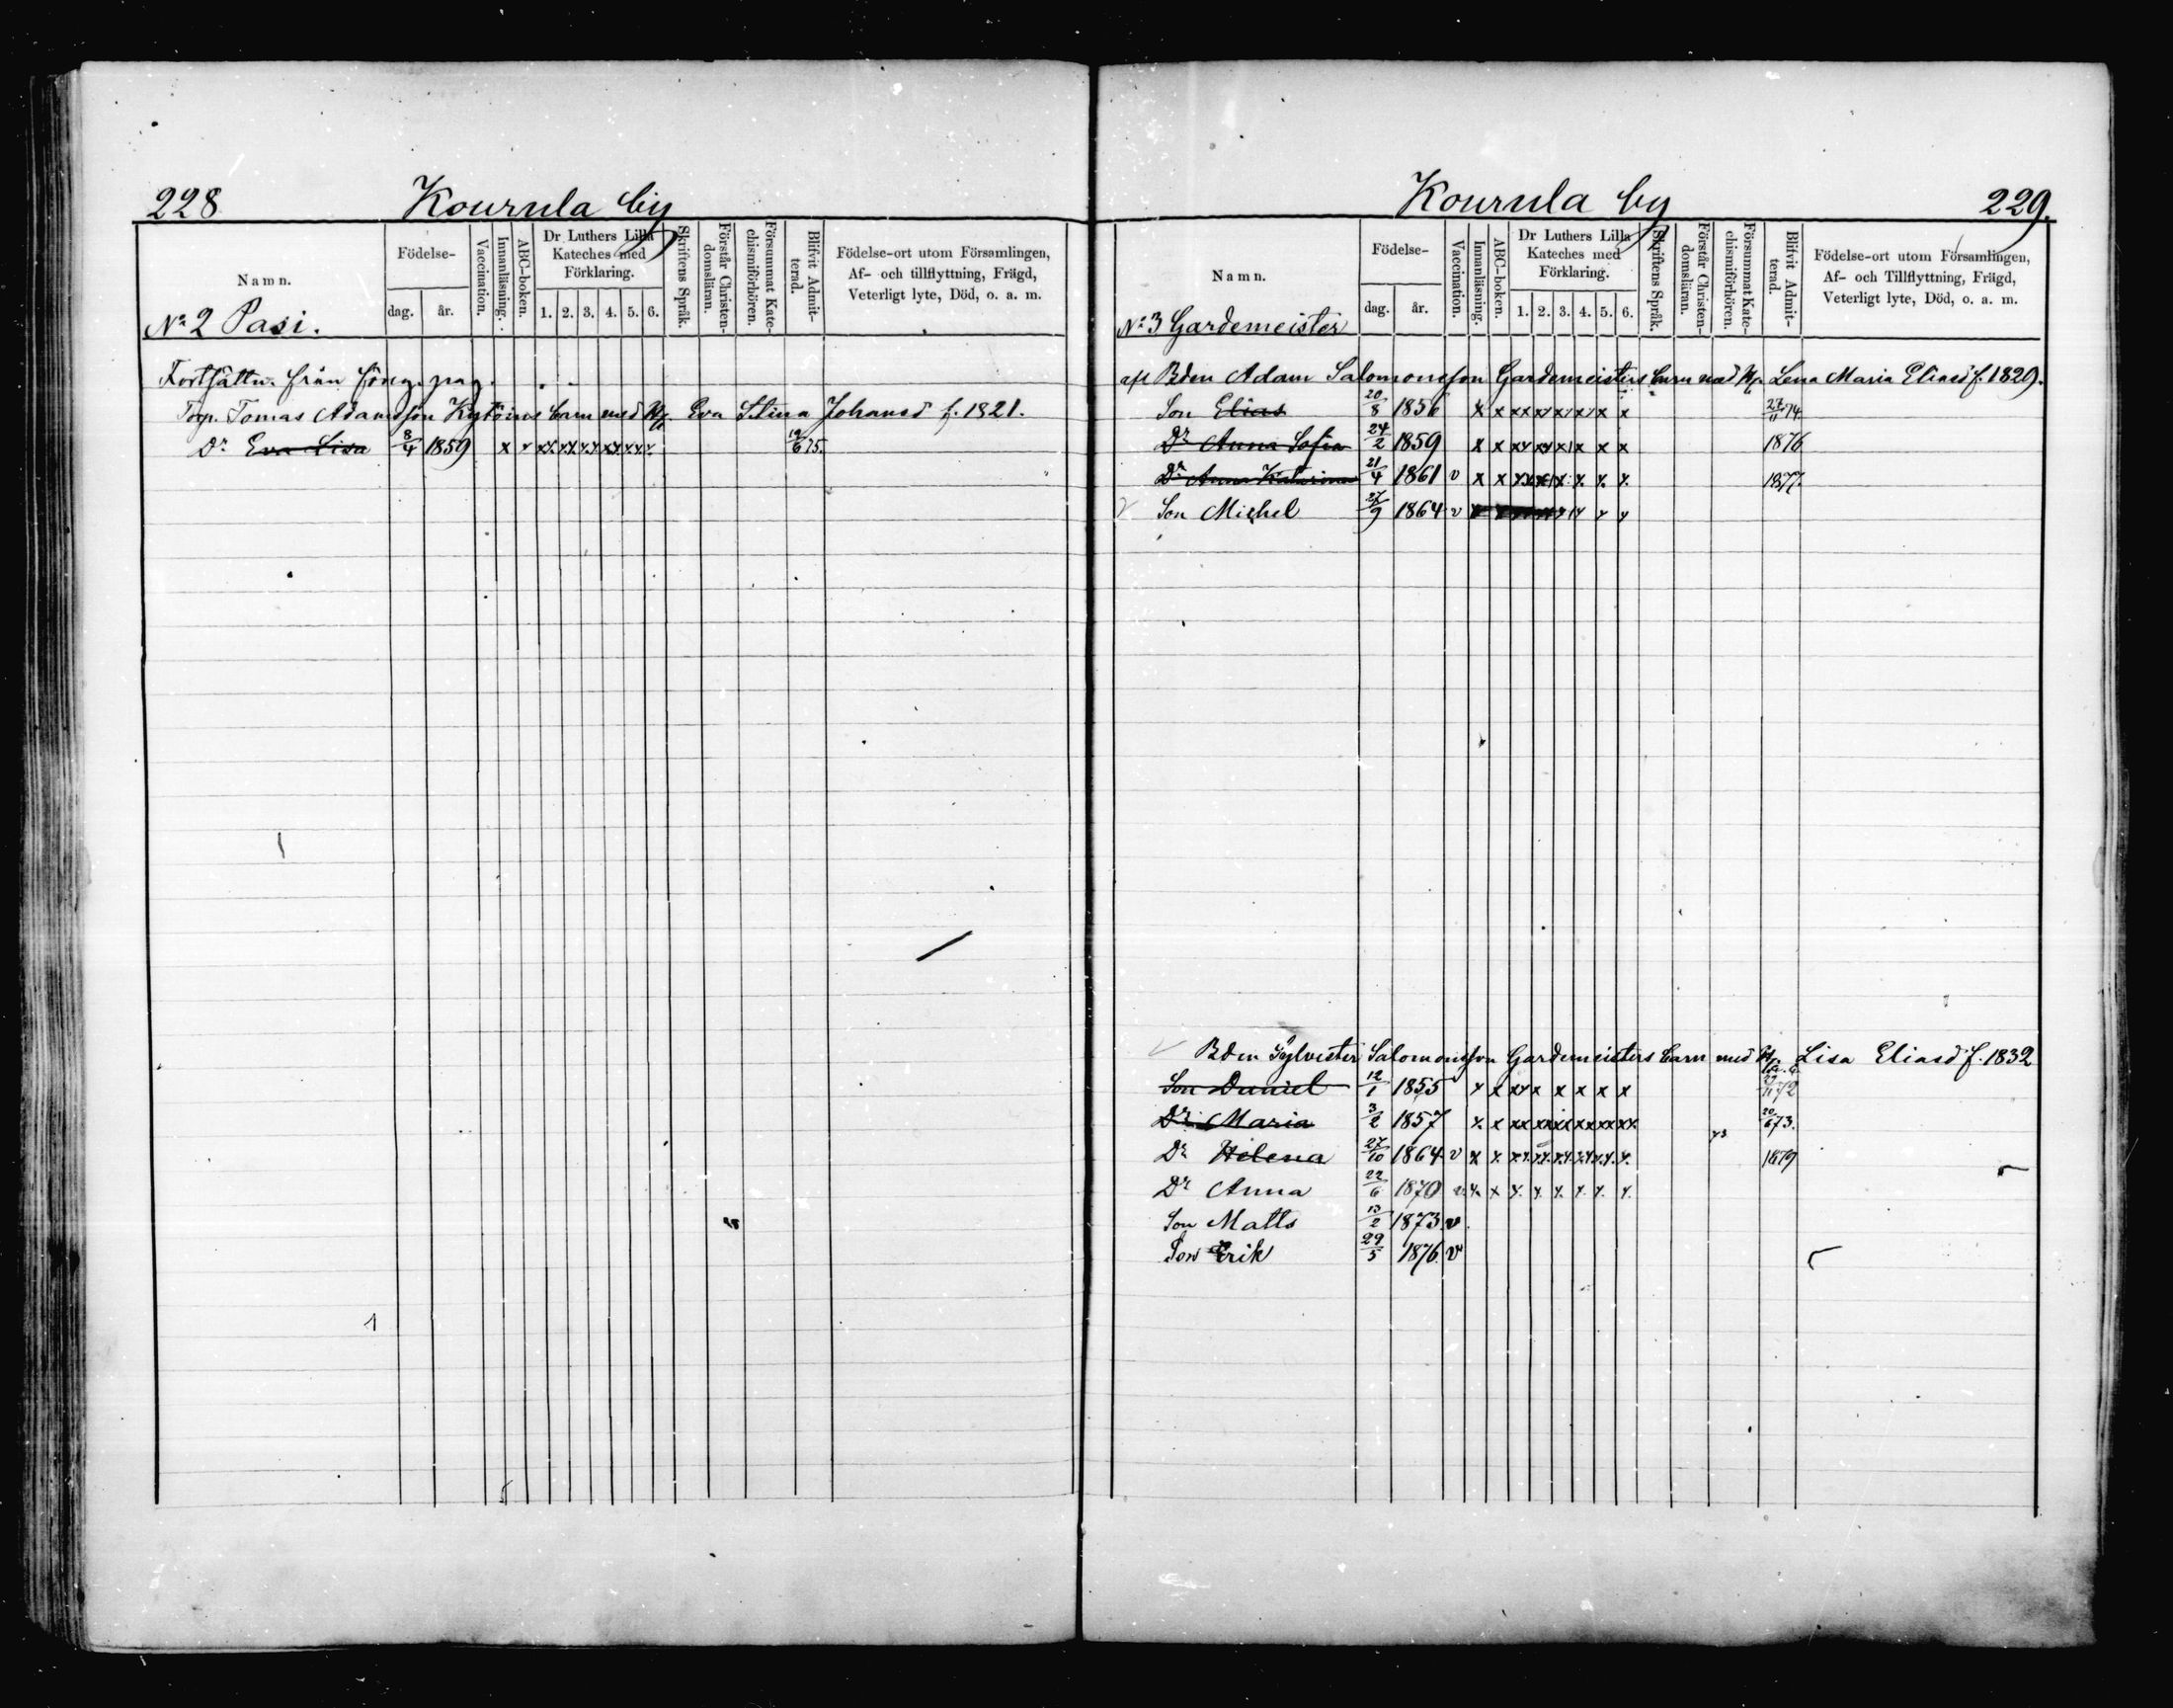 228 Kourula by
Namn. Födelse- dag. år. Vaccination. Innanläsning. ABC-boken. Dr Luthers Lilla Kateches med Förklaring. 1. 2. 3. 4. 5. 6. Skriftens Språk. Förstår Christendomsläran. Försummat Katechismiförhören. Blifvit Admitterad. Födelse-ort utom Församlingen, Af- och tillflyttning, Frägd, Veterligt lyte, Död, o. a. m.
No 2 Pasi.
Fortsättn. från föreg. pag.
Torp. Tomas Adamsson Kytöins barn med H. Eva Stina Johansd f. 1821.
Dr Eva Lisa 8/4 1859 x x xx xx xx xx xx x 19/6 75.
Kourula by 229.
Namn. Födelse- dag. år. Vaccination. Innanläsning. ABC-boken. Dr Luthers Lilla Kateches med Förklaring. 1. 2. 3. 4. 5. 6. Skriftens Språk. Förstår Christendomsläran. Försummat Katechismiförhören. Blifvit Admitterad. Födelse-ort utom Församlingen, Af- och Tillflyttning, Frägd, Veterligt lyte, Död, o. a. m.
No 3 Gardemeister
afl Bden Adam Salomonsson Gardemeisters barn med H. Lena Maria Eliasd f. 1829.
Son Elias 20/8 1856 x x xx xx xx xx x x 27/11 74.
Dr Anna Sofia 24/2 1859 x x xx xx xx x x x 1876
Dr Anna Katarina 21/4 1861 v x x xx xx x x x x 1877.
Son Michel 27/9 1864 v x x x x
Bden Sylvester Salomonsson Gardemeisters barn med H. Lisa Eliasd f. 1832
Son Daniel 12/1 1855 x x xx x x x x x 72
Dr Maria 3/2 1857 x x xx xx xx xx xx xx 20/6 73.
Dr Helena 27/10 1864 v x x xx xx xx xx xx x 1879
Dr Anna 22/6 1870 v x x x x x x x x
Son Matts 13/2 1873 v
Son Erik 29/5 1876 v